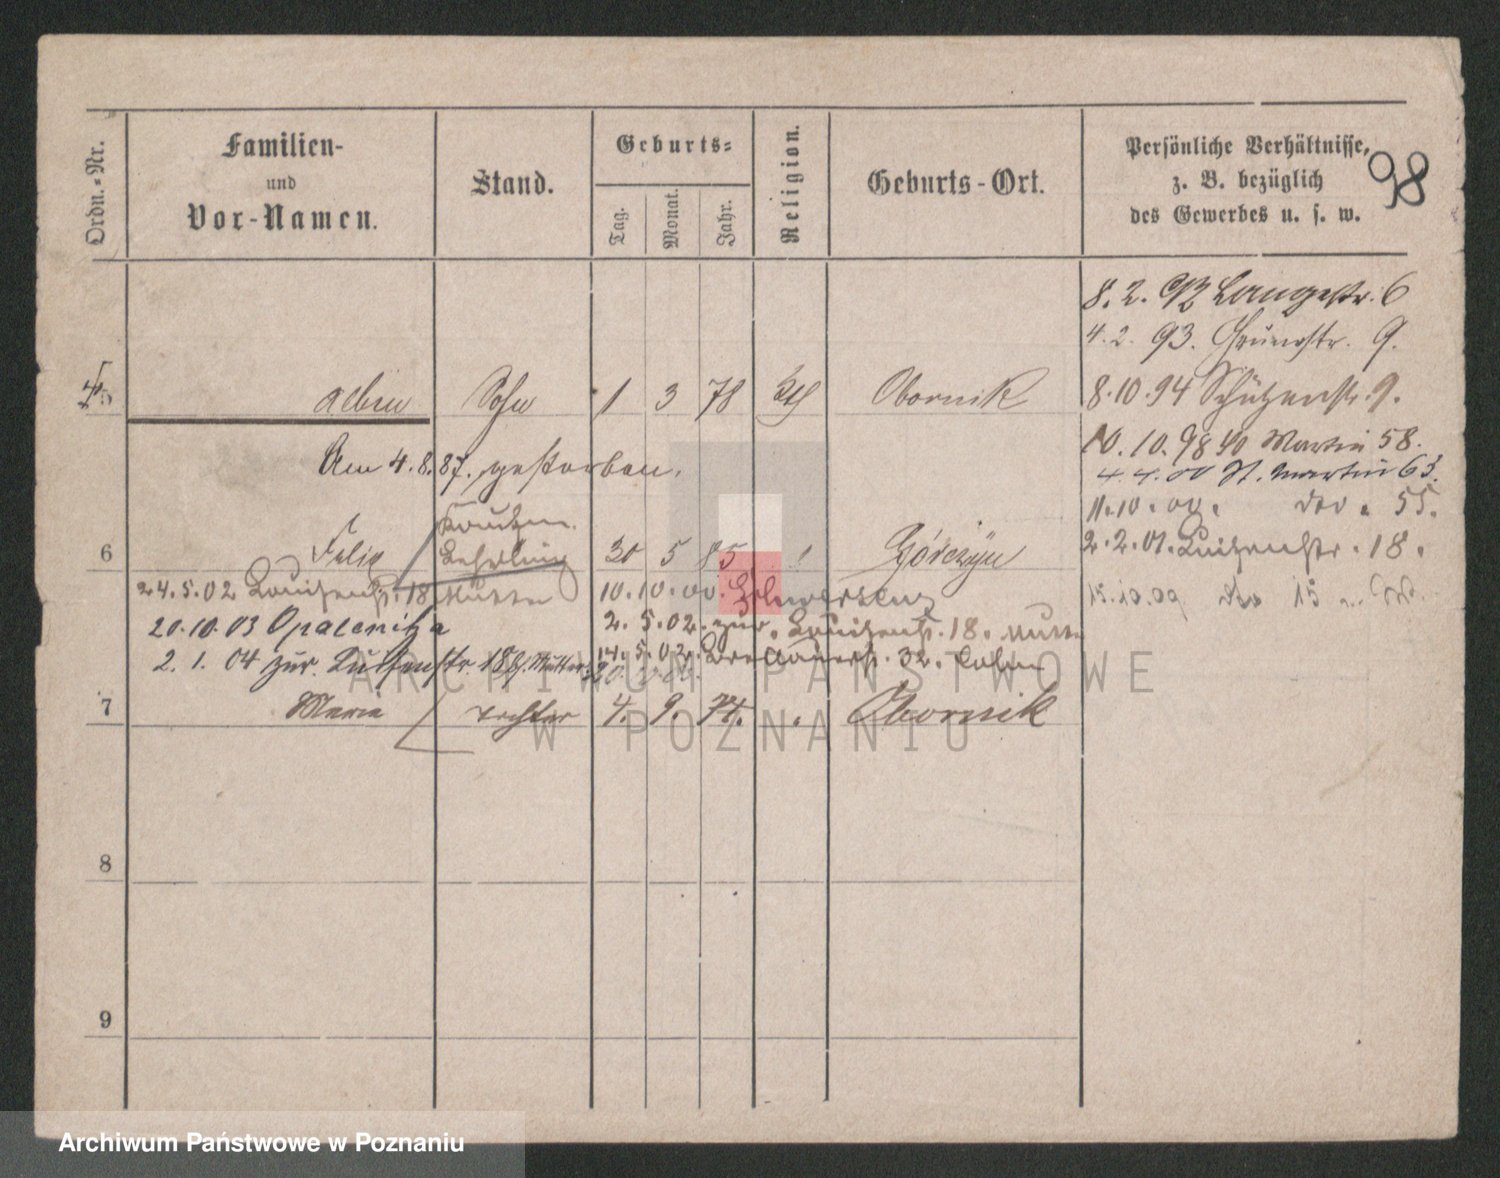 98
Ordn.-Nr.
Familien-
und
Vor-Namen.
Stand.
Geburts-
Tag.
Monat.
Jahr.
Religion.
Geburts-Ort.
Persönliche Verhältnisse,
z. B. bezüglich
des Gewerbes u. s. w.
8. 2. 92 Langestr. 6
4. 2. 93. Grünstr. 9.
5 Albin Sohn 1 3 78 Obornik
8.10.94 Schützenstr. 9.
Am 4.8.87. gestorben.
10.10.98 Martin 58.
4.4.00 St. Martin 63.
11.10.00. do. 55.
6 Felix Lehrling 30 5 85 Górczyn
2.2.01. Luisenstr. 18.
24.5.02 Louisenst. 18 Mutter
10.10.00.
15.10.09 do 15
20.10.03 Opalenitza
2. 5. 02. zur. Louisenst. 18. Mutter
2. 1. 04 zur. Luisenstr. 18 Mutter
14. 5. 02. Breslauerst. 32.
7 Maria Tochter 4. 9. 74. Obornik
8
9
ARCHIWUM PAŃSTWOWE
W POZNANIU
Archiwum Państwowe w Poznaniu